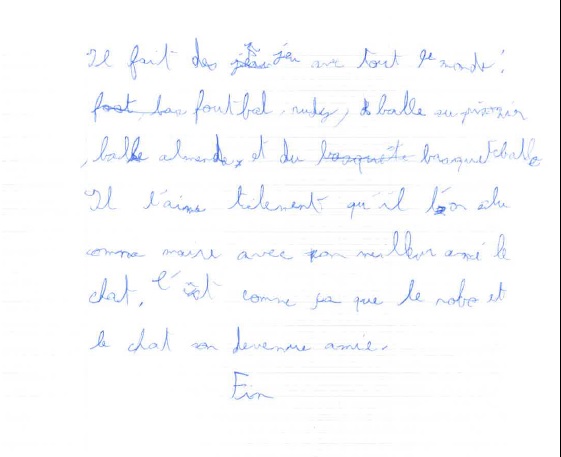 Il fait des jeu avec tout le monde :
foutbal, rudy, balle au prisonnier
, balle almende, et du basquetballe
Il l'aime tilement qu'il l'on élu
comme maire avec son meilleur amé le
chat, c'êt comme sa que le robo et
le chat son devenue amie.
Fin